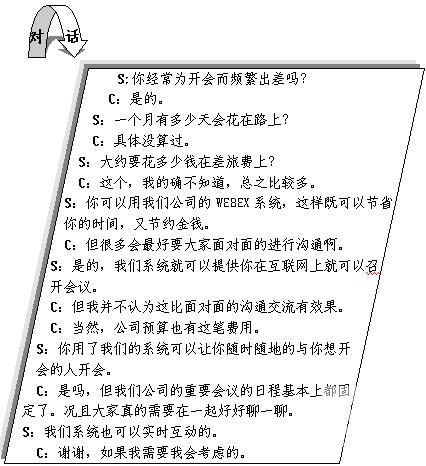 对话
S: 你经常为开会而频繁出差吗？
C: 是的。
S: 一个月有多少天会花在路上？
C: 具体没算过。
S: 大约要花多少钱在差旅费上？
C: 这个，我的确不知道，总之比较多。
S: 你可以用我们公司的 WEBEX 系统，这样既可以节省
你的时间，又节约金钱。
C: 但很多会最好要大家面对面的进行沟通啊。
S: 是的，我们系统就可以提供你在互联网上就可以召
开会议。
C: 但我并不认为这比面对面的沟通交流有效果。
C: 当然，公司预算也有这笔费用。
S: 你用了我们的系统可以让你随时随地的与你想开
会的人开会。
C: 是吗，但我们公司的重要会议的日程基本上都固
定了。况且大家真的需要在一起好好聊一聊。
S: 我们系统也可以实时互动的。
C: 谢谢，如果我需要我会考虑的。